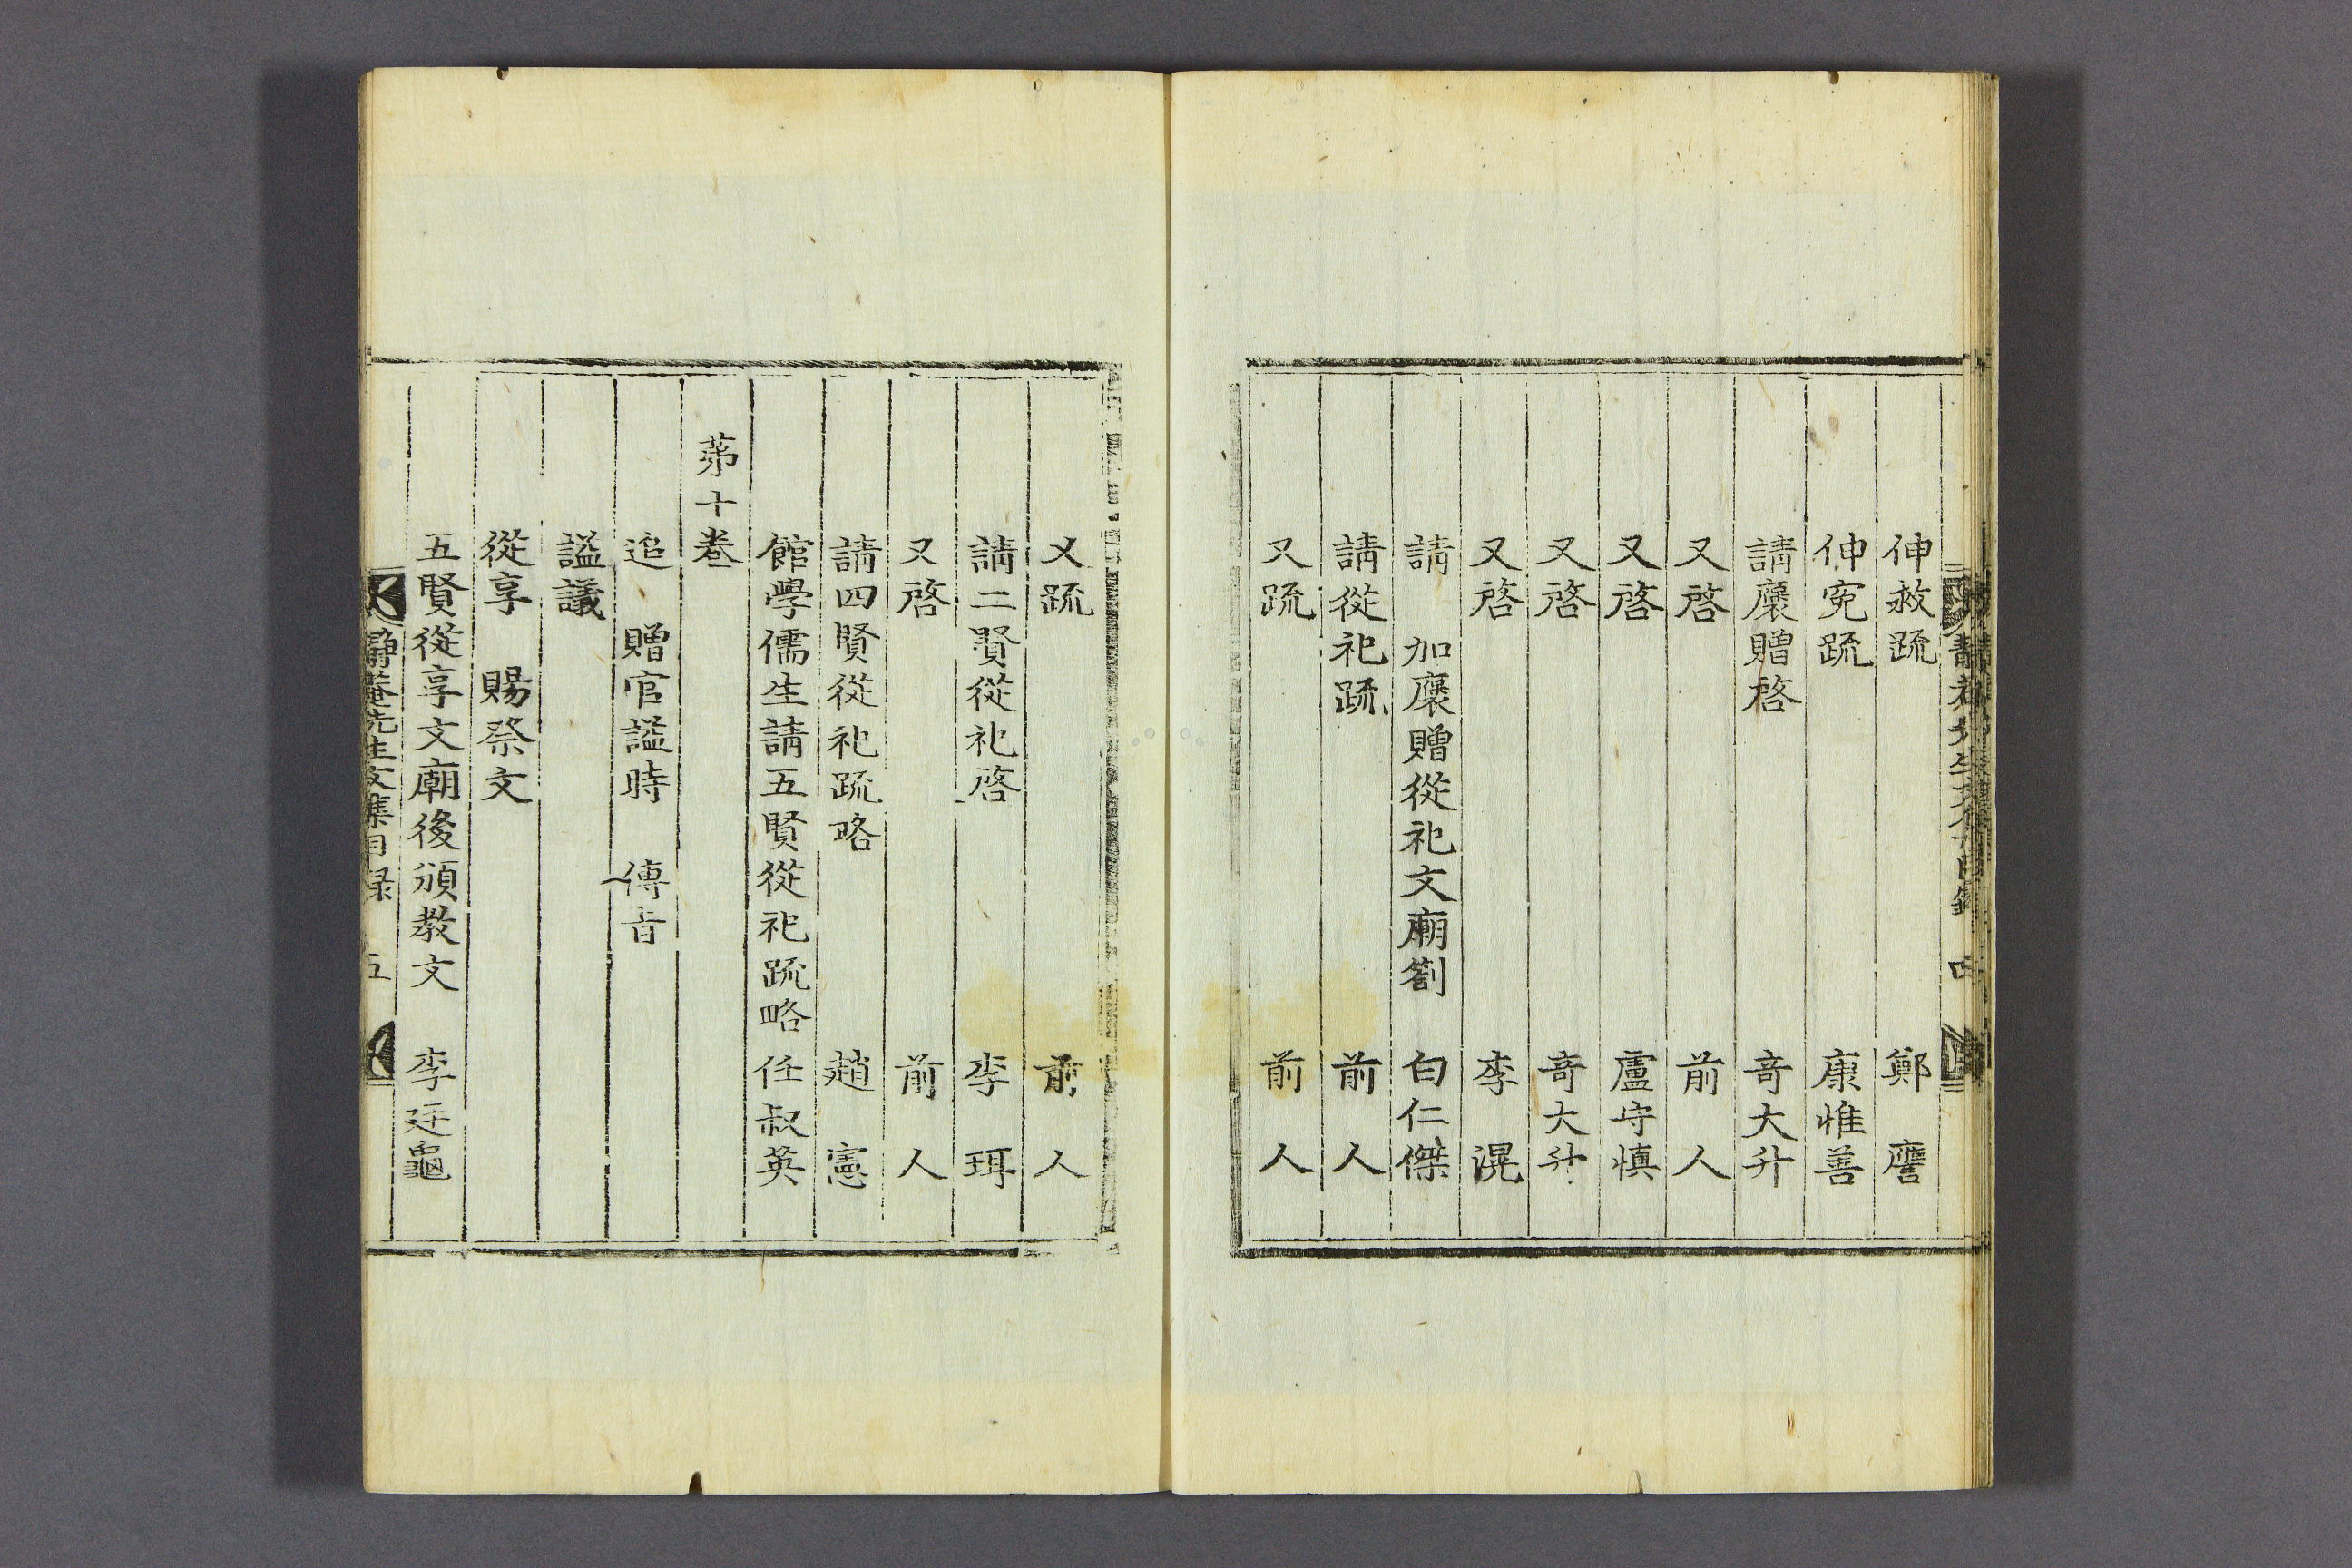 伸救疏 鄭譍
伸寃疏 康惟善
請襃贈啓 奇大升
又啓 前人
又啓 盧守愼
又啓 奇大升
又啓 李滉
請 加襃贈從祀文廟劄 白仁傑
請從祀疏 前人
又疏 前人
又疏 前人
請二賢從祀啓 李珥
又啓 前人
請四賢從祀疏略 趙憲
館學儒生請五賢從祀疏略 任叔英
苐十卷
追 贈官謚時 傳旨
謚議
從享 賜祭文
五賢從享文廟後頒敎文 李廷龜
靜菴先生文集目錄 五